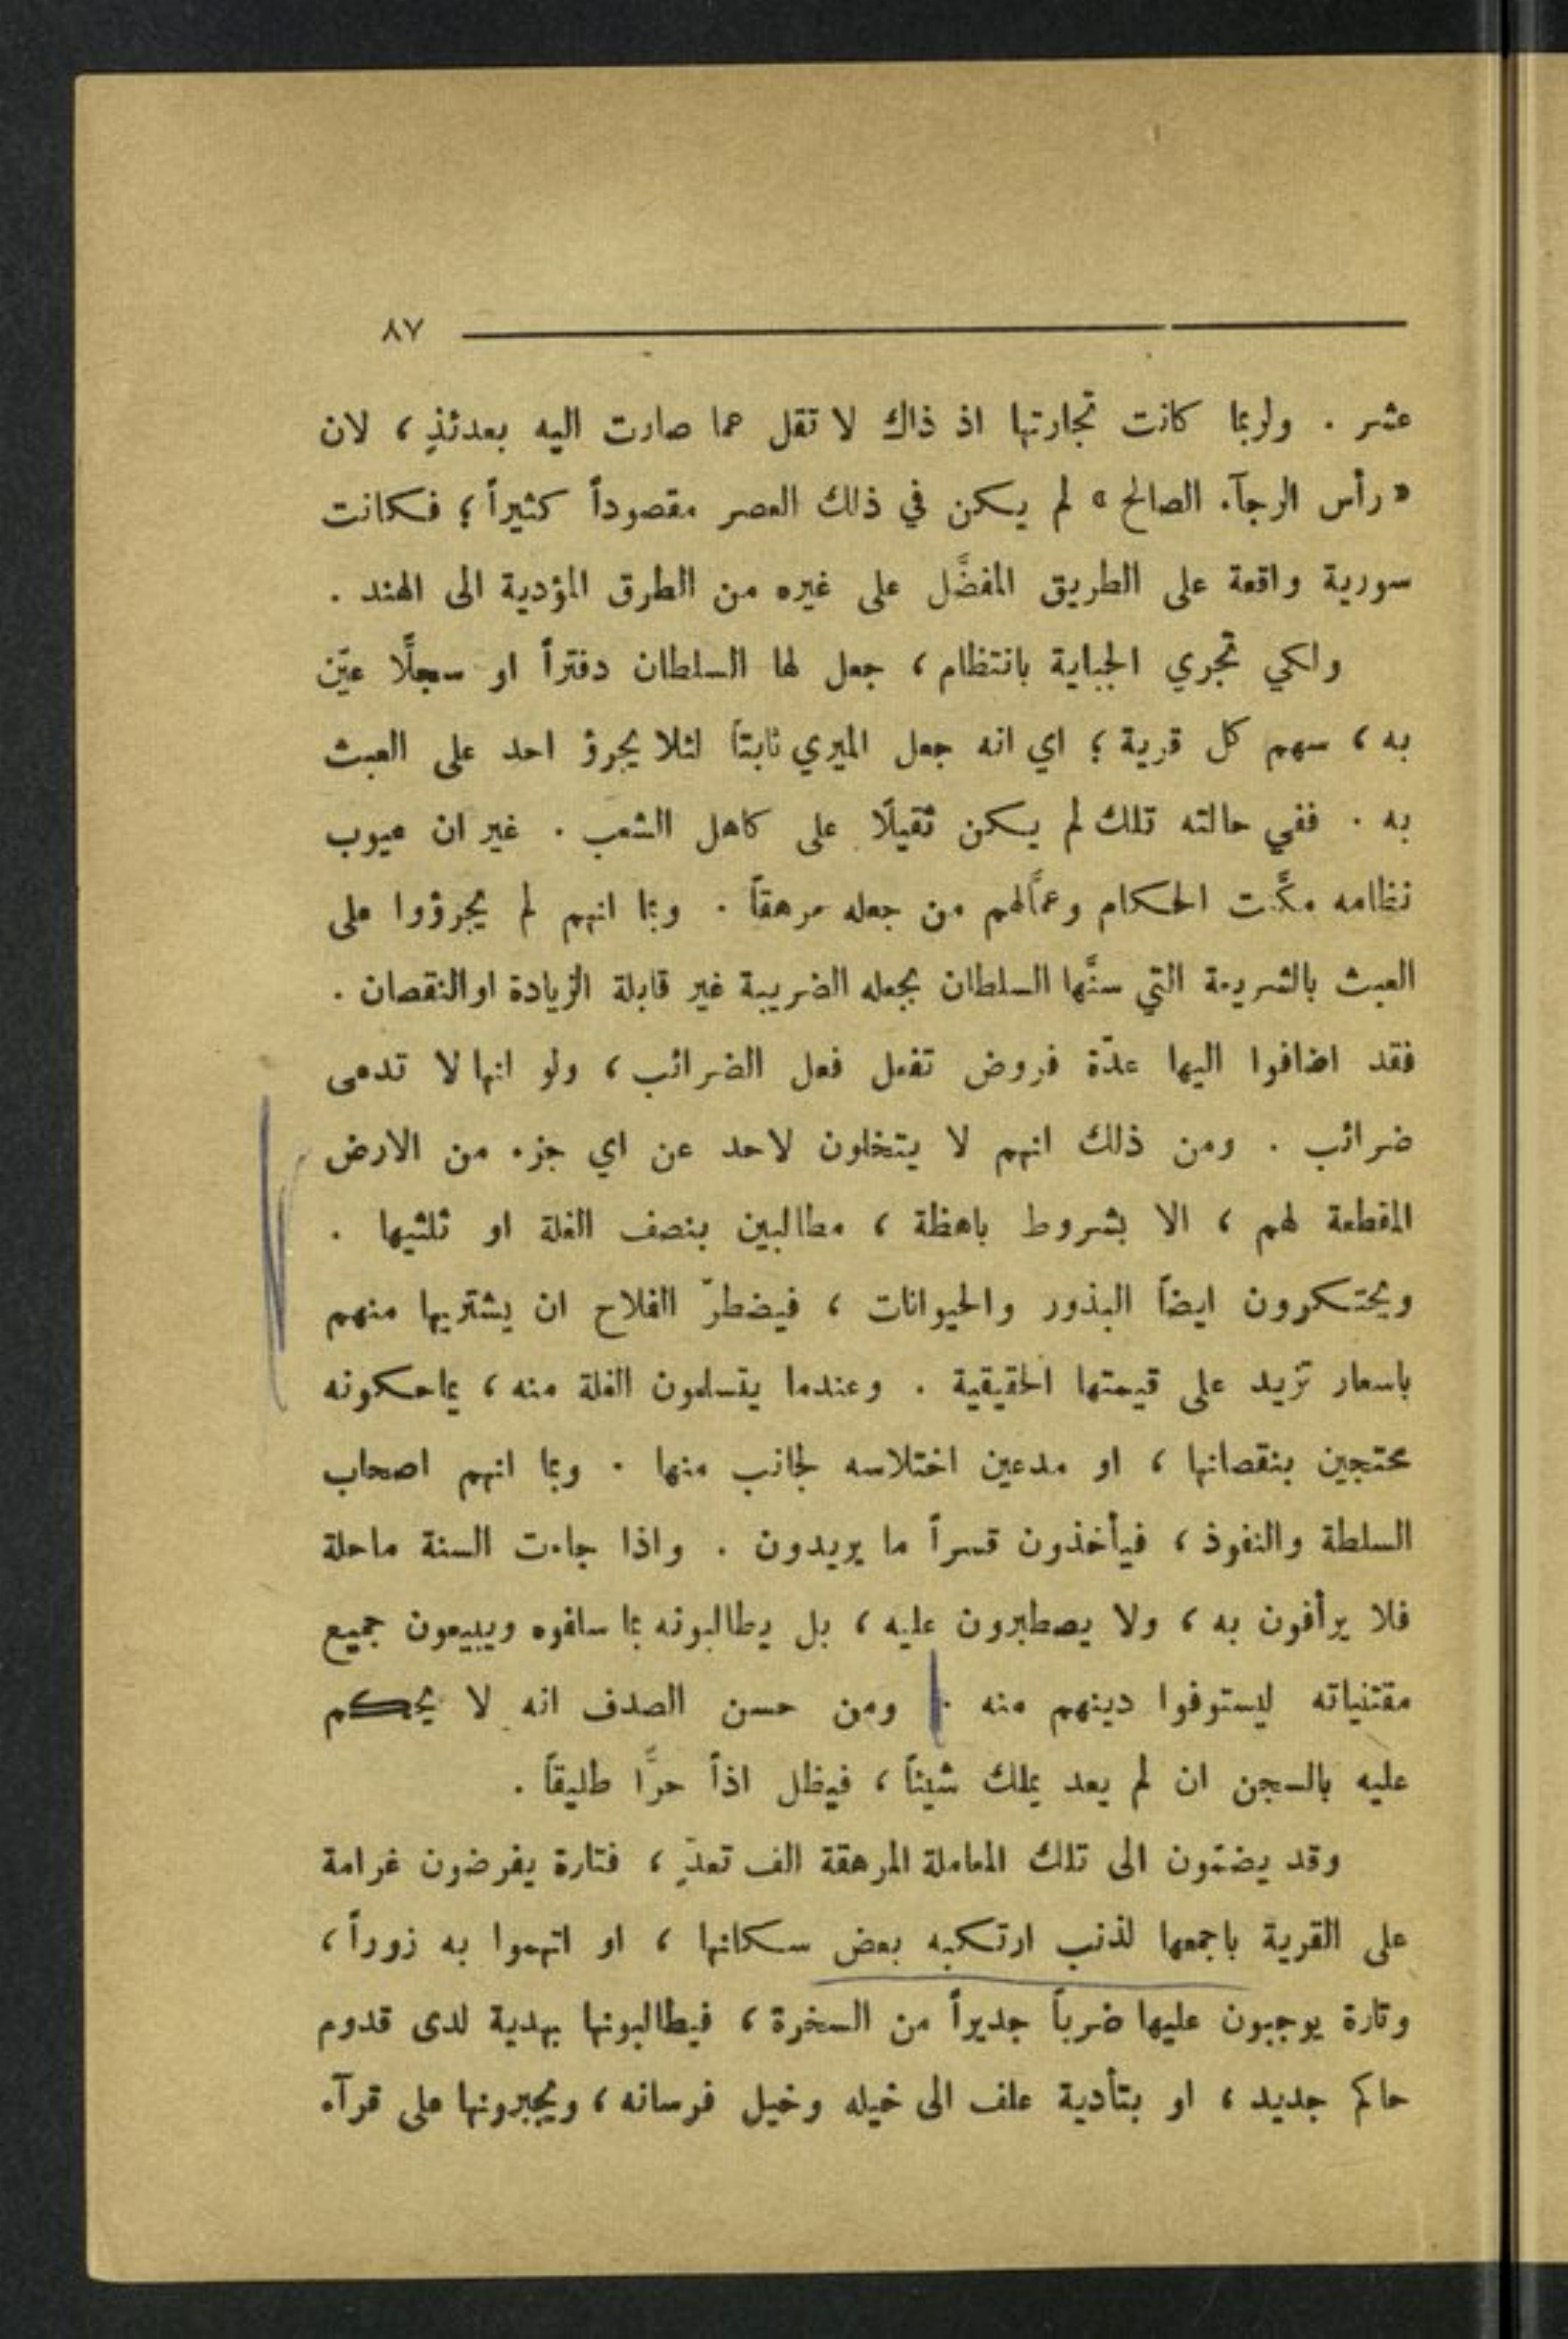 ٨٧
عشر . ولربما كانت تجارتها اذ ذاك لا تقل عما صارت اليه بعدئذٍ ، لان
« رأس الرجآء الصالح » لم يكن في ذلك العصر مقصوداً كثيراً ؛ فكانت
سورية واقعة على الطريق المفضَّل على غيره من الطرق المؤدية الى الهند .
ولكي تجري الجباية بانتظام ، جعل لها السلطان دفتراً او سجلًا عيّن
به ، سهم كل قرية ؛ اي انه جعل الميري ثابتاً لئلا يجرؤ احد على العبث
به . ففي حالته تلك لم يكن ثقيلًا على كاهل الشعب . غير ان عيوب
نظامه مكَّنت الحكام وعمَّالهم من جعله مرهقاً . وبما انهم لم يجرؤوا على
العبث بالشريعة التي سنَّها السلطان بجعله الضريبة غير قابلة الزيادة او النقصان .
فقد اضافوا اليها عدّة فروض تفعل فعل الضرائب ، ولو انها لا تدعى
ضرائب . ومن ذلك انهم لا يتخلون لاحد عن اي جزء من الارض
المقطعة لهم ، الا بشروط باهظة ، مطالبين بنصف الغلة او ثلثيها .
ويحتكرون ايضاً البذور والحيوانات ، فيضطرّ الفلاح ان يشتريها منهم
باسعار تزيد على قيمتها الحقيقية . وعندما يتسلمون الغلة منه ، يماحكونه
محتجين بنقصانها ، او مدعين اختلاسه لجانب منها . وبما انهم اصحاب
السلطة والنفوذ ، فيأخذون قسراً ما يريدون . واذا جاءت السنة ماحلة
فلا يرأفون به ، ولا يصطبرون عليه ، بل يطالبونه بما سلفوه ويبيعون جميع
مقتنياته ليستوفوا دينهم منه . ومن حسن الصدف انه لا يحكم
عليه بالسجن ان لم يعد يملك شيئاً ، فيظل اذاً حرًّا طليقاً .
وقد يضمّون الى تلك المعاملة المرهقة الف تعدٍّ ، فتارة يفرضون غرامة
على القرية باجمعها لذنب ارتكبه بعض سكانها ، او اتهموا به زوراً ،
وتارة يوجبون عليها ضرباً جديراً من السخرة ، فيطالبونها بهدية لدى قدوم
حاكم جديد ، او بتأدية علف الى خيله وخيل فرسانه ، ويجبرونها على قرآء